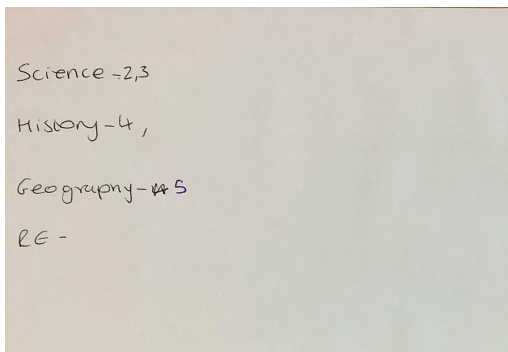 Science - 2,3
History - 4,
Geography - 5
RE -